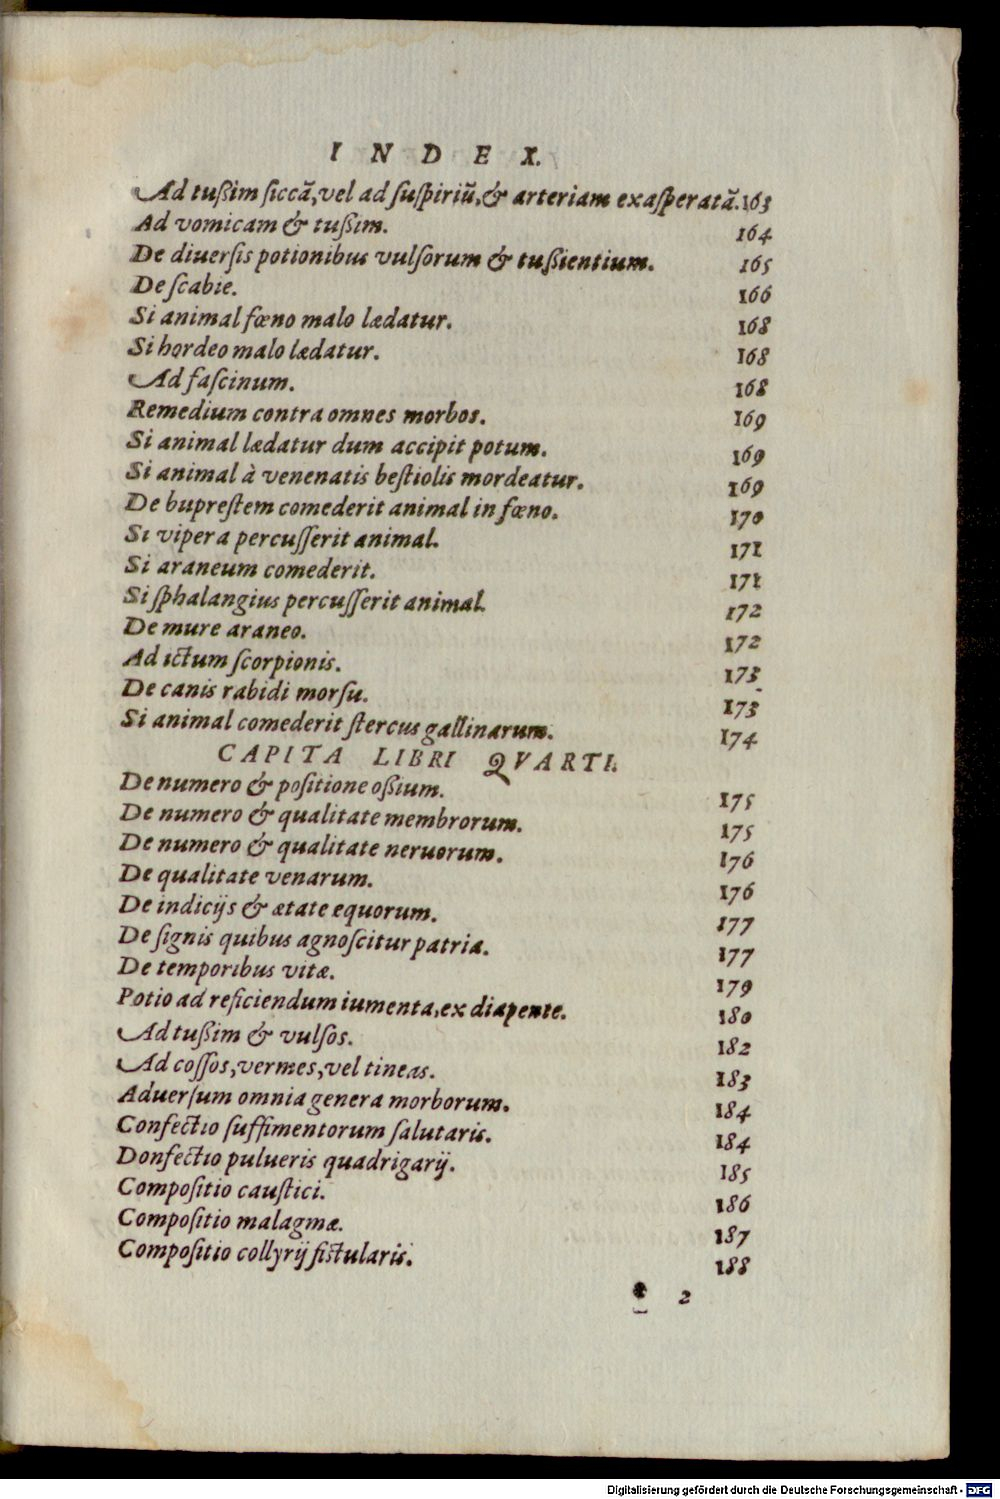 INDEX.
Ad tußim ſiccã, vel ad ſuſpiriũ, & arteriam exaſperatã. 163
Ad vomicam & tußim. 164
De diuerſis potionibus vulſorum & tußientium. 165
De ſcabie. 166
Si animal fœno malo lædatur. 168
Si hordeo malo lædatur. 168
Ad faſcinum. 168
Remedium contra omnes morbos. 169
Si animal lædatur dum accipit potum. 169
Si animal à venenatis beſtiolis mordeatur. 169
De bupreſtem comederit animal in fœno. 170
Si vipera percuſſerit animal. 171
Si araneum comederit. 171
Si ſphalangius percuſſerit animal. 172
De mure araneo. 172
Ad ictum ſcorpionis. 173
De canis rabidi morſu. 173
Si animal comederit ſtercus gallinarum. 174
CAPITA LIBRI QVARTI.
De numero & poſitione oßium. 175
De numero & qualitate membrorum. 175
De numero & qualitate neruorum. 176
De qualitate venarum. 176
De indicijs & ætate equorum. 177
De ſignis quibus agnoſcitur patria. 177
De temporibus vitæ. 179
Potio ad reficiendum iumenta, ex diapente. 180
Ad tußim & vulſos. 182
Ad coſſos, vermes, vel tineas. 183
Aduerſum omnia genera morborum. 184
Confectio ſuffimentorum ſalutaris. 184
Donfectio pulueris quadrigarij. 185
Compoſitio cauſtici. 186
Compoſitio malagmæ. 187
Compoſitio collyrij fiſtularis. 188
2
Digitalisierung gefördert durch die Deutsche Forschungsgemeinschaft - DFG